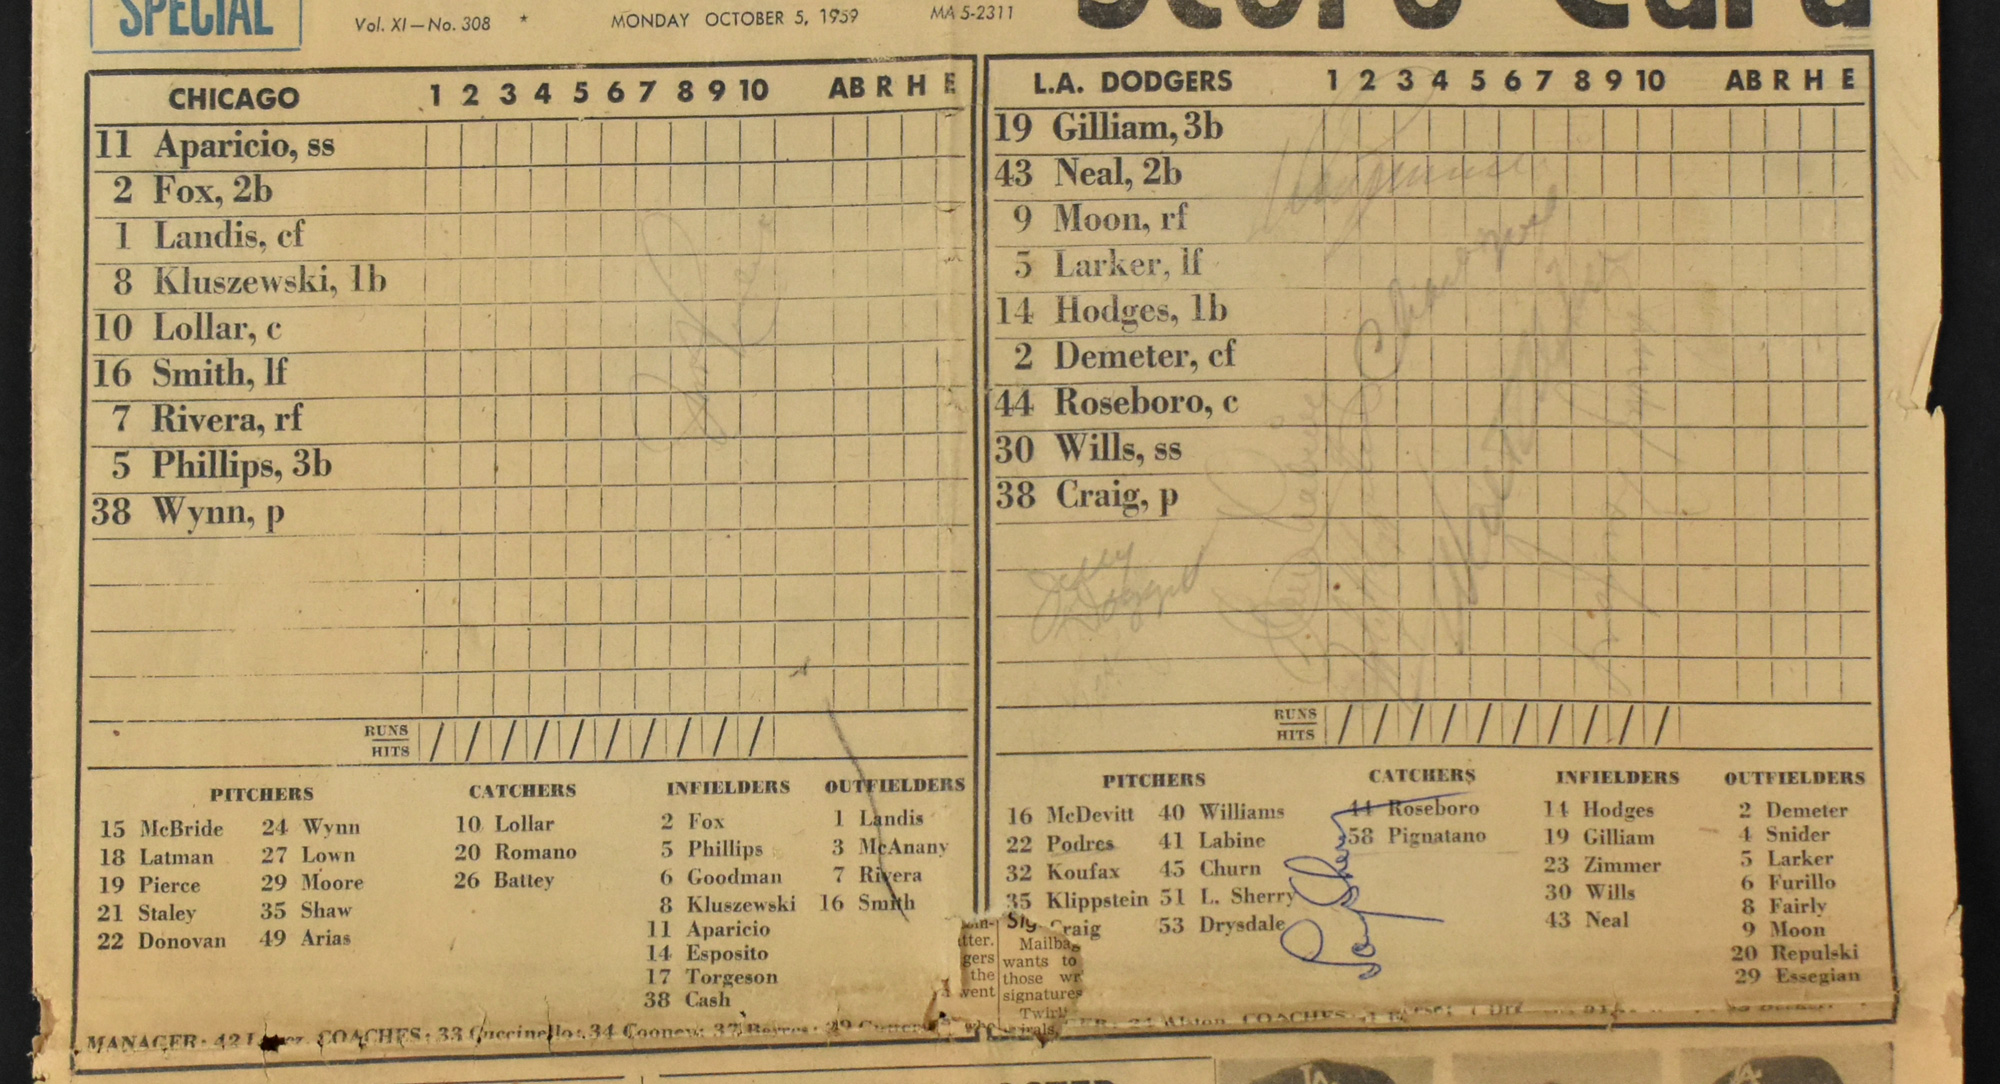 SPECIAL
Vol. XI—No. 308 * MONDAY OCTOBER 5, 1959 MA 5-2311
Score Card
CHICAGO 1 2 3 4 5 6 7 8 9 10 AB R H E
11 Aparicio, ss
2 Fox, 2b
1 Landis, cf
8 Kluszewski, 1b
10 Lollar, c
16 Smith, lf
7 Rivera, rf
5 Phillips, 3b
38 Wynn, p
RUNS
HITS
PITCHERS
15 McBride
18 Latman
19 Pierce
21 Staley
22 Donovan
24 Wynn
27 Lown
29 Moore
35 Shaw
49 Arias
CATCHERS
10 Lollar
20 Romano
26 Battey
INFIELDERS
2 Fox
5 Phillips
6 Goodman
8 Kluszewski
11 Aparicio
14 Esposito
17 Torgeson
38 Cash
OUTFIELDERS
1 Landis
3 McAnany
7 Rivera
16 Smith
MANAGER: 42 COACHES: 33 Cuccinello; 34 Cooney; 37 Berres;
L.A. DODGERS 1 2 3 4 5 6 7 8 9 10 AB R H E
19 Gilliam, 3b
43 Neal, 2b
9 Moon, rf
5 Larker, lf
14 Hodges, 1b
2 Demeter, cf
44 Roseboro, c
30 Wills, ss
38 Craig, p
RUNS
HITS
PITCHERS
16 McDevitt
22 Podres
32 Koufax
35 Klippstein
Craig
40 Williams
41 Labine
45 Churn
51 L. Sherry
53 Drysdale
CATCHERS
44 Roseboro
58 Pignatano
INFIELDERS
14 Hodges
19 Gilliam
23 Zimmer
30 Wills
43 Neal
OUTFIELDERS
2 Demeter
4 Snider
5 Larker
6 Furillo
8 Fairly
9 Moon
20 Repulski
29 Essegian
Alston COACHES
gers
the
went
Mailba
wants to
those
signatures
LA
LA